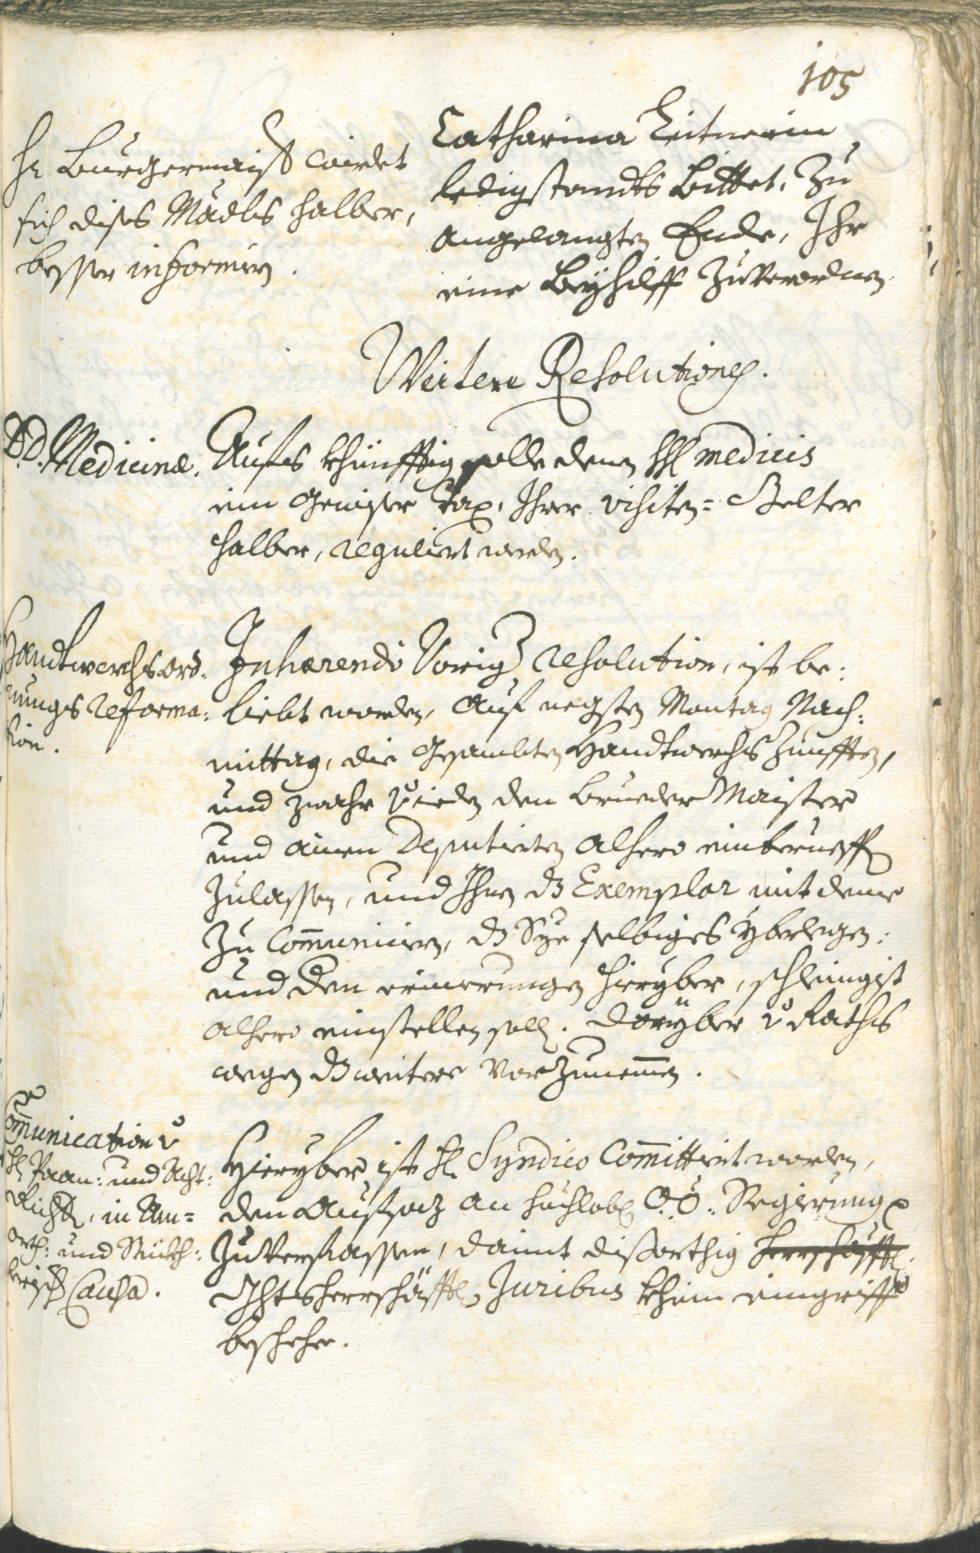 105
Hr. Burgermaist. wirdet
sich dises Mädls halber,
besser informirn.
Catharina Leitnerin
ledigstandts Bittet, Zu
angelangten Ende, Ihr
eine Beyhilff Zuverordnen
Weitere Resolutiones.
D.D. Medicinæ.
Aufs khünfftig solle denen HH. medicis
ein Gewiser Tax, Ihrer visiten= Gelter
halber, regulirt werden.
Handtwerchs ord:
nungs Reforma:
tion.
Inhærendo Vorig. resolution, ist be:
liebt worden, Auf negsten Montag Nach:
mittag, die Gesambten Handtwerchs Zunfften,
und zwahr v. ieden den Brueder Maister
und ainen Deputierten alhero einberueffen
Zulassen, und Ihnen dz Exemplar mit deme
Zu Com̄unicirn, dz Sye selbiges yberlegen:
und den erinerungen hieryber, schleinigist
alhero einstellen soll. Daryber v. Raths
wegen dz weitere Vorzunem̄en.
Com̄unication v.
H. Paan: und Acht:
Richt., in Am=
orth: und Mülh:
Causa.
Hieryber ist H. Syndico Com̄ittirt worden,
den Aufsaz an hochlobl. O:Ö: Regierung
Zuverfassen, damit disorthig herrschäfftl:
Ghtsherrschäfftl. Juribus khein eingriff
beschehe.